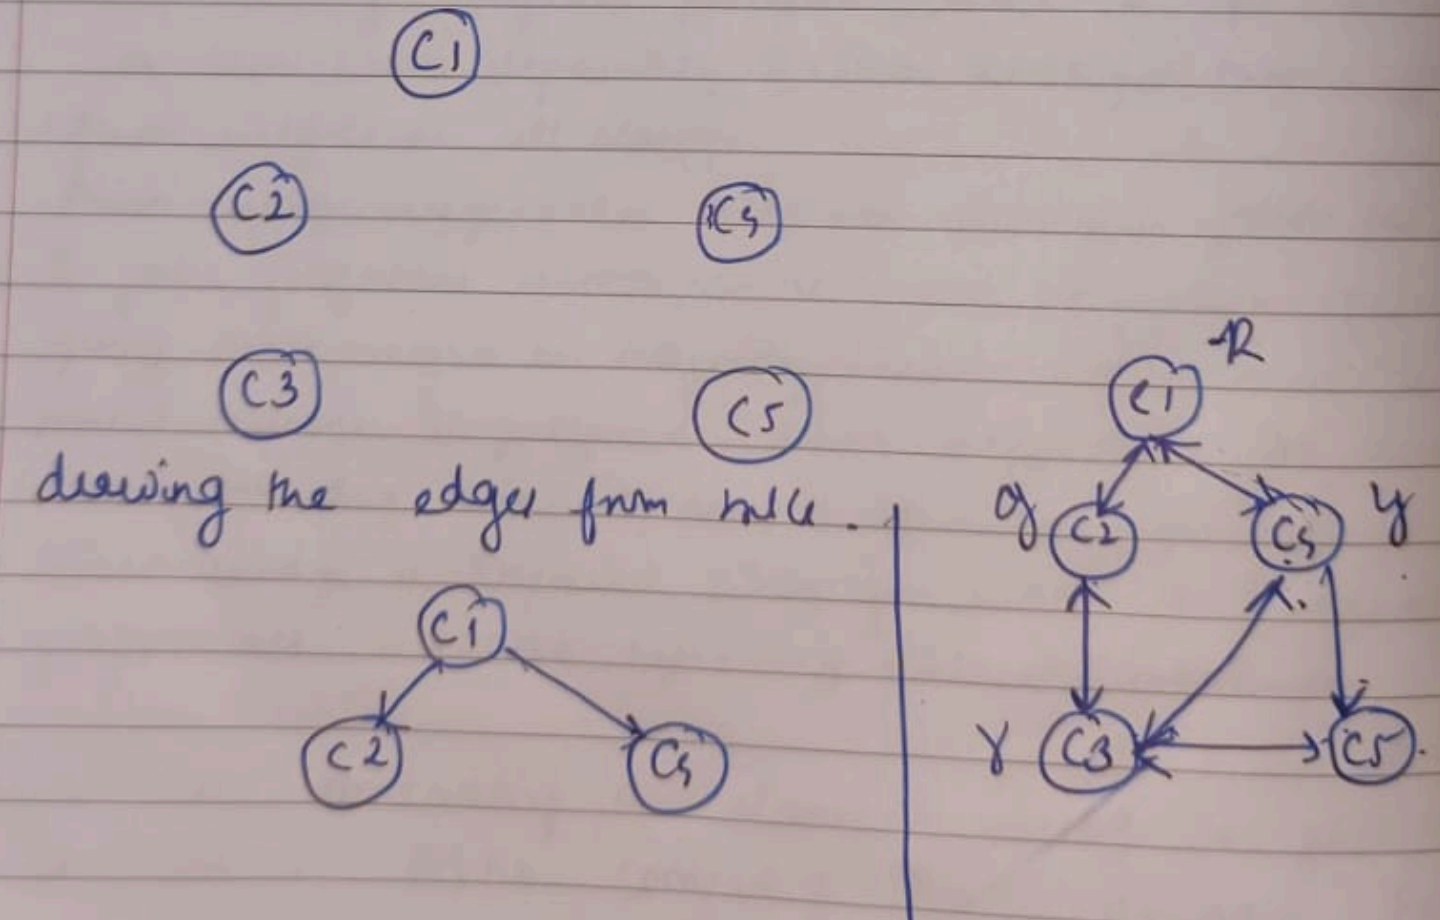 C1
C2
C4
C3
C5
drawing the edges from
C1
C2
C4
R
C1
g
C2
C4
y
r
C3
C5